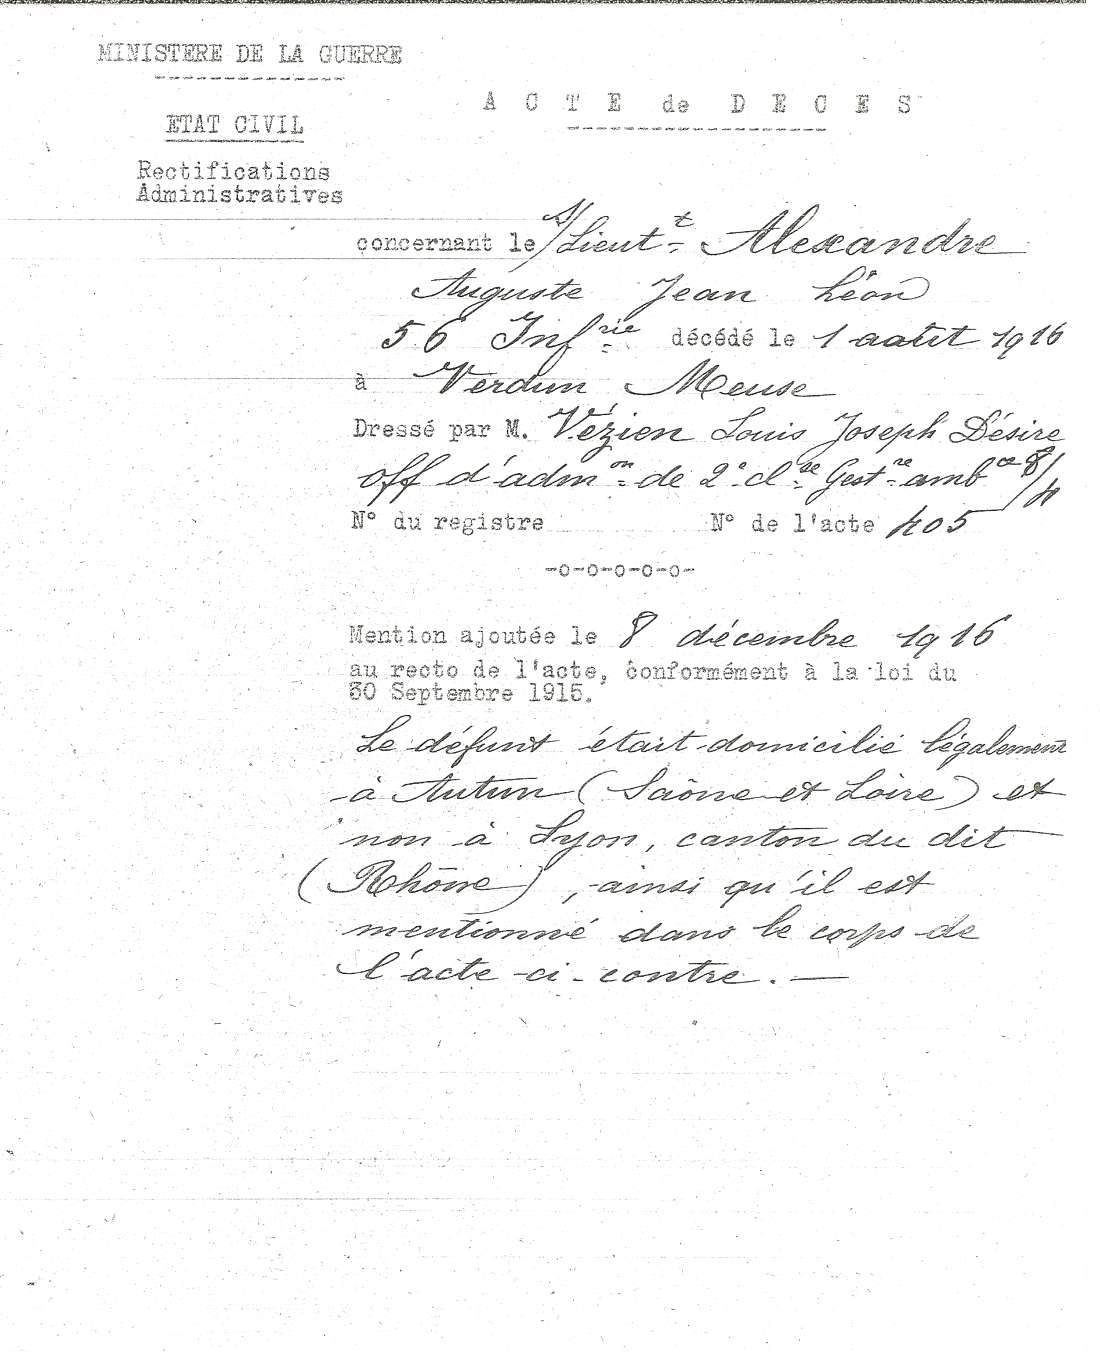 MINISTERE DE LA GUERRE
A C T E de D E C E S
ETAT CIVIL
Rectifications
Administratives
concernant le S/Lieut^t Alexandre
Auguste Jean Léon
56 Inf^rie décédé le 1 août 1916
à Verdun Meuse
Dressé par M. Vézien Louis Joseph Désire
off d'adm^on de 2^e cl^se Gest^re amb^ce 8/4
N° du registre N° de l'acte 405
-o-o-o-o-o-
Mention ajoutée le 8 décembre 1916
au recto de l'acte, conformément à la loi du
30 Septembre 1915.
Le défunt était domicilié légalement
à Autun (Saône et Loire) et
non à Lyon, canton du dit
(Rhône), ainsi qu'il est
mentionné dans le corps de
l'acte ci-contre. —